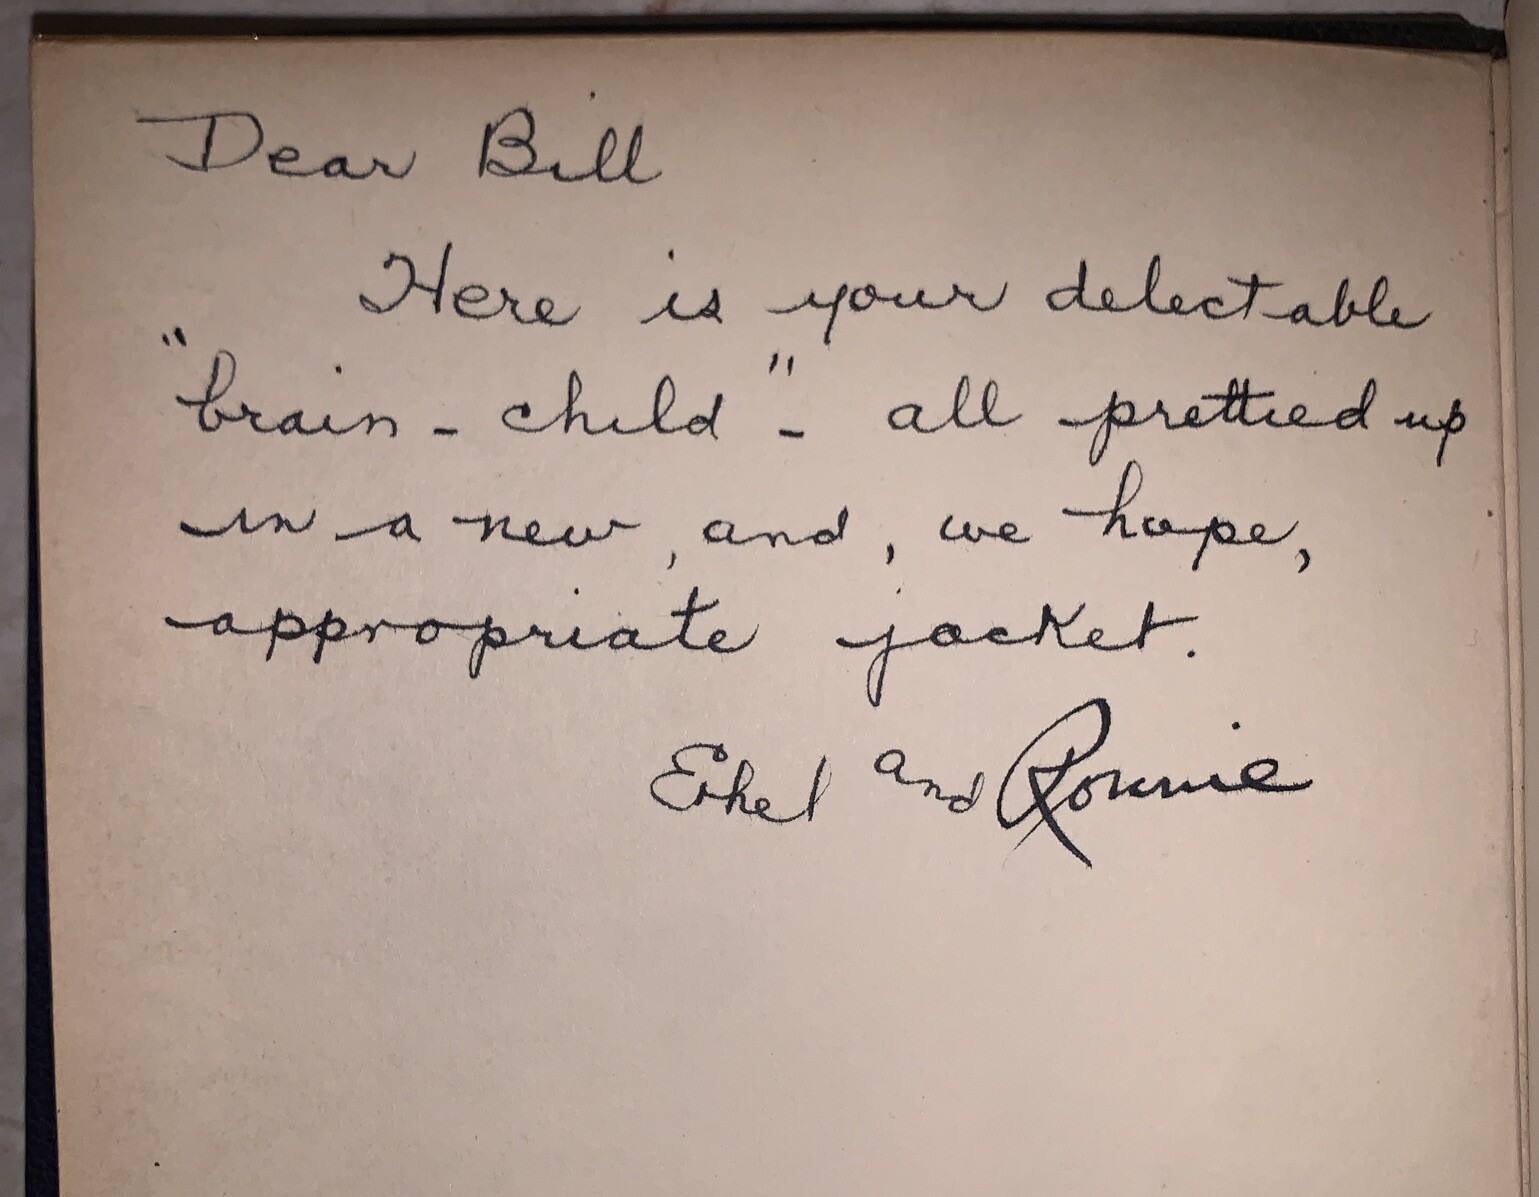 Dear Bill
Here is your delectable
"brain - child" - all prettied up
in a new, and, we hope,
appropriate jacket.
Ethel and Ronnie